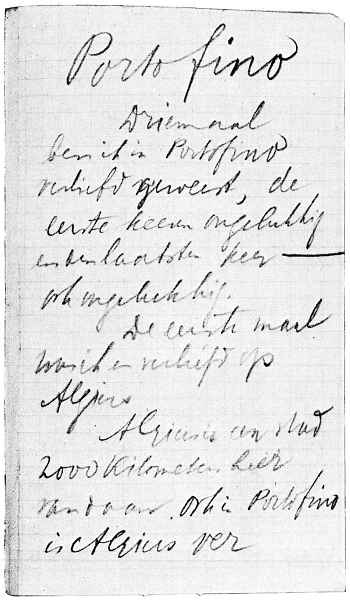 Portofino
Driemaal
ben ik in Portofino
verliefd geweest, de
eerste keeren ongelukkig
en den laatsten keer —
ook ongelukkig.
De eerste maal
was ik er verliefd op
Algiers
Algiers is een stad
2000 kilometer hier
vandaan. Ook in Portofino
is Algiers ver